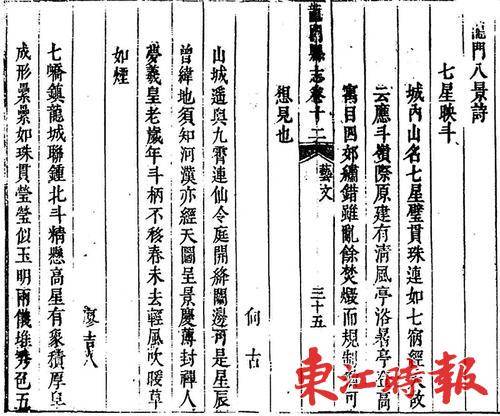 龍門八景詩
七星映斗
城內山名七星璧貫珠連如七宿經天故
云應斗嶺際原建有清風亭浴亭登高
寓目四郊繡錯雖亂餘焚燬而規制可
龍門縣志卷十二 藝文 三十五
想見也
何古
山城遥與九霄連仙令庭開絳闕邊可是星辰
曾緯地須知河漢亦經天圖呈景慶薄封禪人
夢羲皇老歲年斗柄不移春未去輕風吹暖草
如煙
廖吉
七嶠鎮龍城聯鍾北斗精懸高星有象積厚阜
成形纍纍如珠貫瑩瑩似玉明兩儀堆秀色五
東江時報